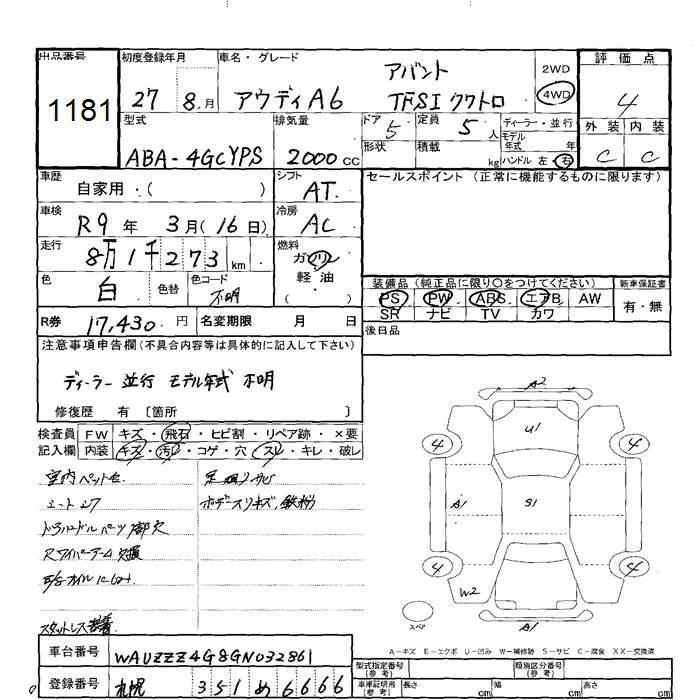 出品番号 1181
初度登録年月 27 8月
車名・グレード アウディA6 アバント TFSI クワトロ
2WD 4WD
評価点 4
外装 C 内装 C
型式 ABA-4GCYPS
排気量 2000 cc
ドア 5 定員 5人
形状 積載 kg
ディーラー・並行
モデル年式 年
ハンドル 左・右
車歴 自家用・( )
シフト AT
セールスポイント (正常に機能するものに限ります)
車検 R9年 3月(16日)
冷房 AC
走行 8万1千273km
燃料 ガソリン 軽油・( )
色 白 色替 色コード 不明
装備品 (純正品に限り○をつけてください)
新車保証書 有・無
PS PW ABS エアB AW
SR ナビ TV カワ
R券 17,430円 名変期限 月 日
後日品
注意事項申告欄(不具合内容等は具体的に記入して下さい)
ディーラー 並行 モデル年式 不明
修復歴 有 〔箇所 〕
検査員記入欄
FW キズ・飛石・ヒビ割・リペア跡・×要
内装 キズ・汚レ・コゲ・穴・スレ・キレ・破レ
室内ペット毛
シートシワ
Rワイパーアーム欠損
スタットレス装着
A2
U1
4 4
A1 S1 A1
4 4
W2
A1
スペア
A-キズ E-エクボ U-凹み W-補修跡 S-サビ C-腐食 XX-交換済
車台番号 WAUZZZ4G8GN032861
登録番号 札幌 351 め 6666
型式指定番号(参考) 類別区分番号(参考)
車庫証明用(参考) 長さ cm 幅 cm 高さ cm